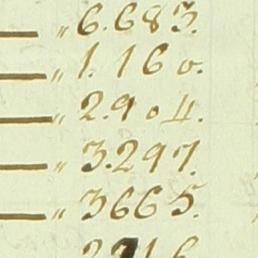 — " 6.683.
— " 1.160.
— " 2.904.
— " 3.297.
— " 3665.